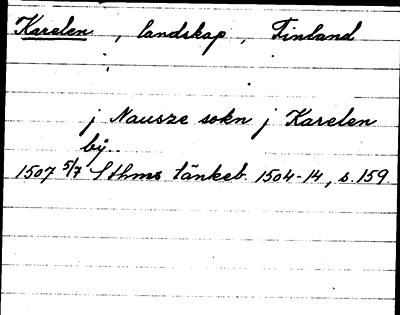 Karelen, landskap, Finland
j Nausze sokn j Karelen
by..
1507 5/7 Sthms tänkeb. 1504-14, s. 159.